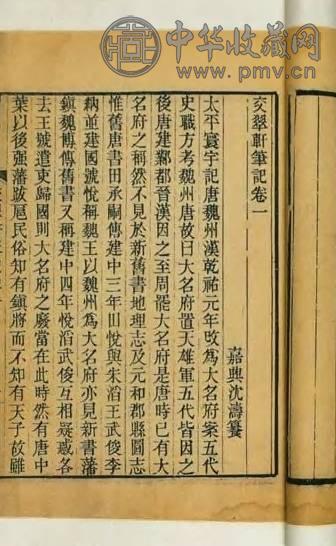 中华收藏网
www.pmv.cn
交翠軒筆記卷一
嘉興沈濤纂
太平寰宇記唐魏州漢乾祐元年改為大名府案五代
史職方考魏州唐故曰大名府置天雄軍五代皆因之
後唐建鄴都晉漢因之至周罷大名府是唐時已有大
名府之稱然不見於新舊書地理志及元和郡縣圖志
惟舊唐書田承嗣傳建中三年田悅與朱滔王武俊李
納並建國號悅稱魏王以魏州為大名府亦見新書藩
鎮魏博傳舊書又稱建中四年悅滔武俊互相疑惑各
去王號遣吏歸國則大名府之廢當在此時然有唐中
葉以後强藩跋扈民俗知有鎮將而不知有天子故雖